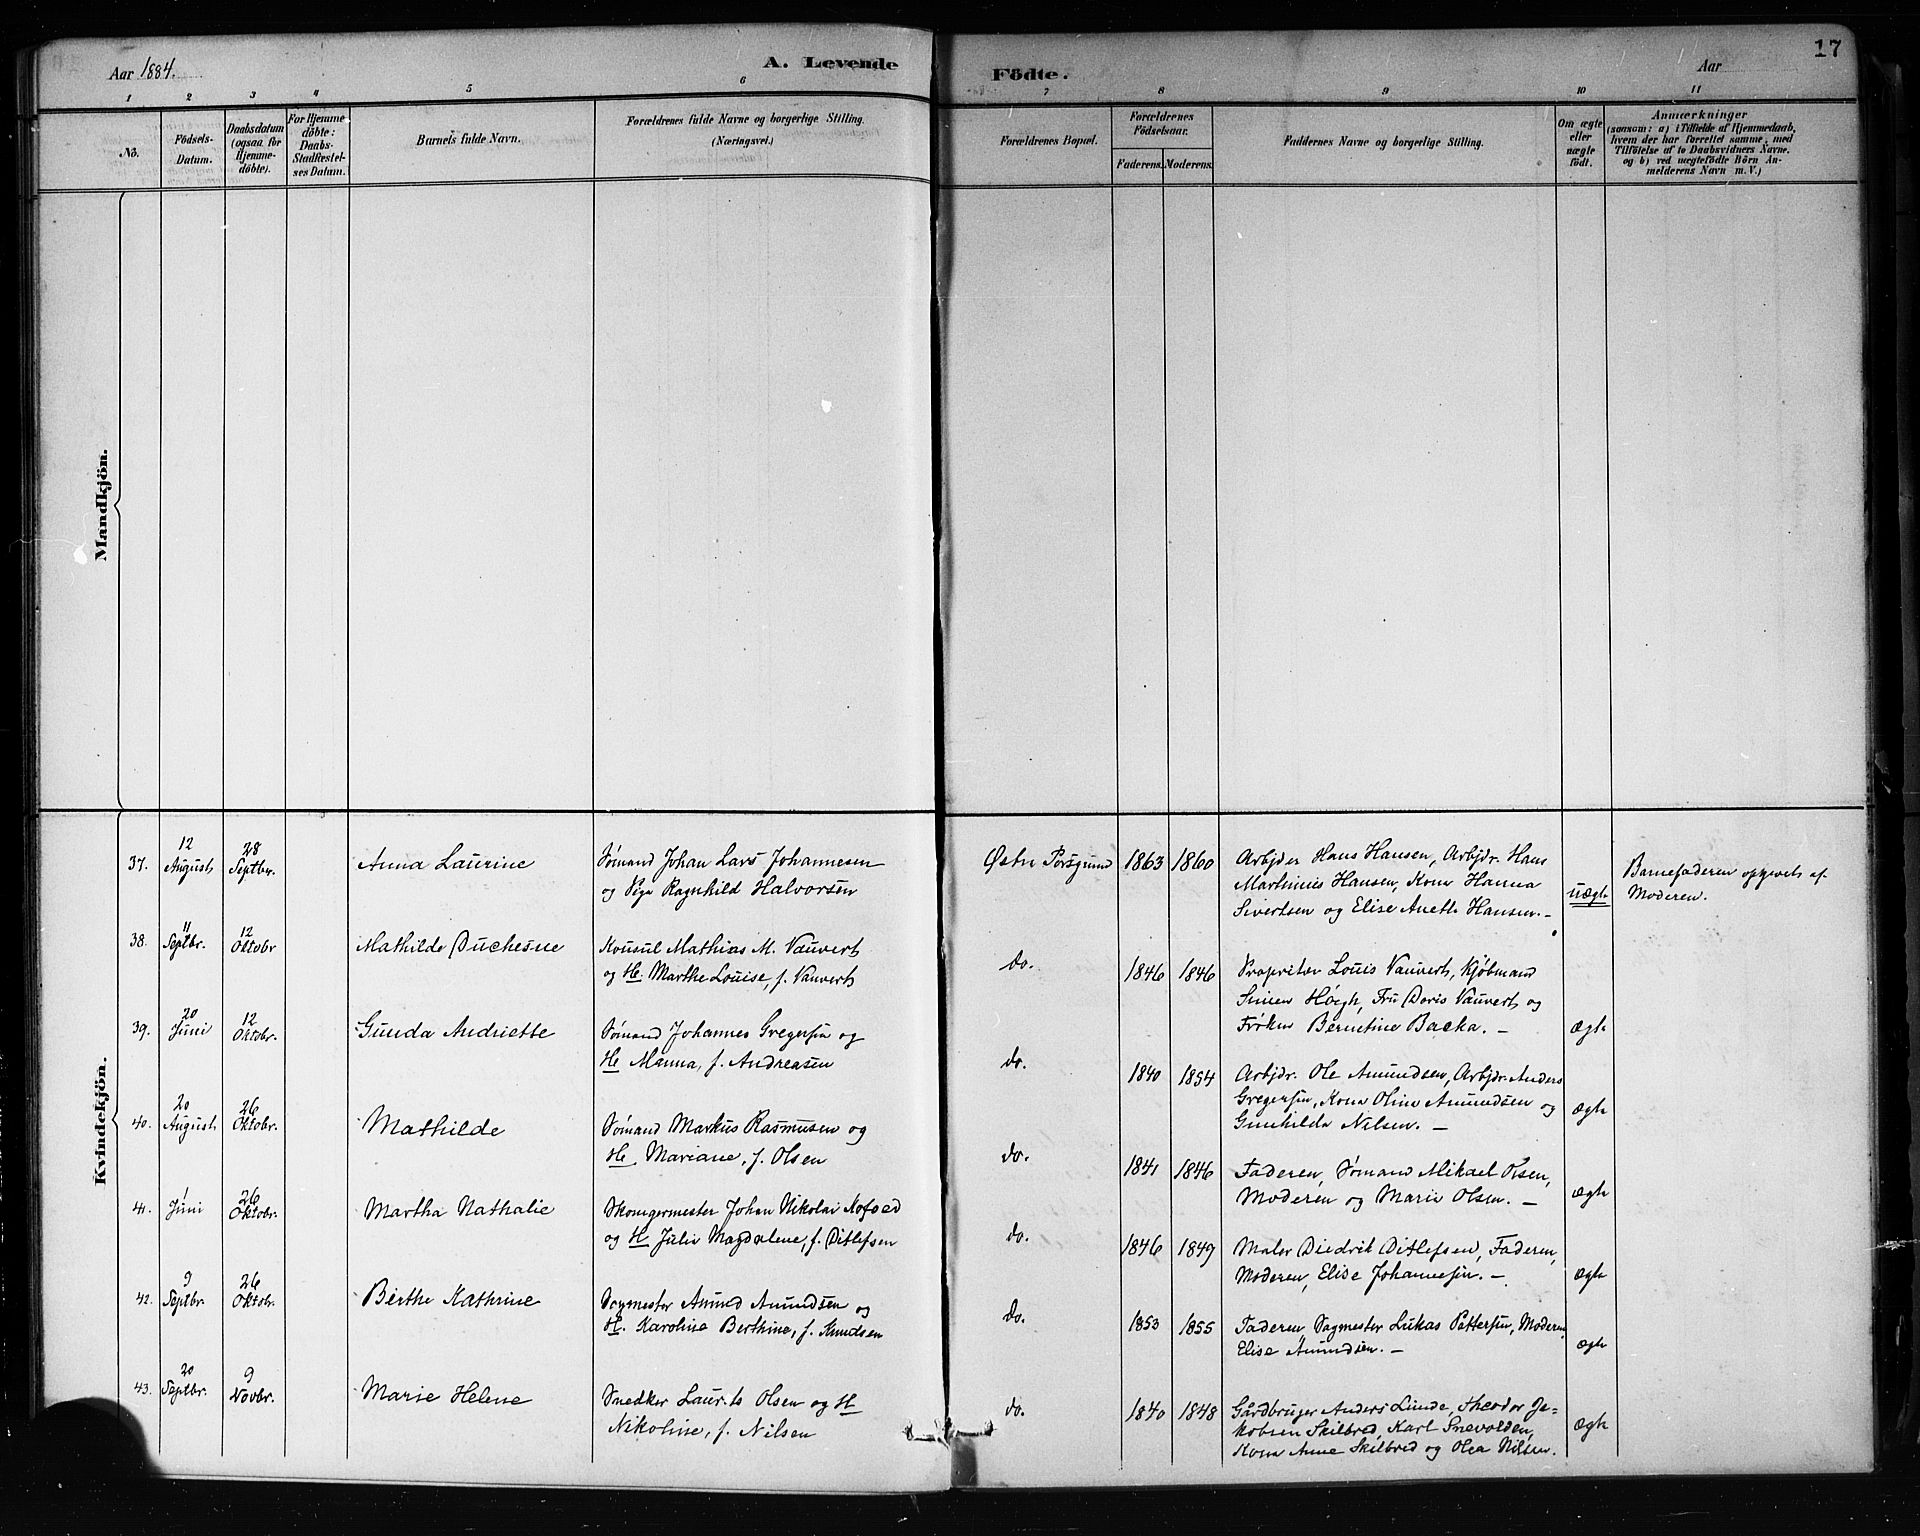 Aar 1884.
A. Levende
Födte.
Aar
17
1 2 3 4 5 6 7 8 9 10 11
No.
Födsels-
Datum.
Daabsdatum
(ogsaa for
Hjemme-
döbte).
For Hjemme
döbte:
Daabs-
Stadfæstel-
ses Datum.
Barnets fulde Navn.
Forældrenes fulde Navne og borgerlige Stilling.
(Næringsvei.)
Forældrenes Bopæl.
Forældrenes
Födselsaar.
Faderens. Moderens.
Faddernes Navne og borgerlige Stilling.
Om ægte
eller
uægte
födt.
Anmærkninger
(saasom: a) i Tilfælde af Hjemmedaab,
hvem der har forrettet samme, med
Tilföielse af to Daabsvidners Navne.
og b) ved uægtefödte Börn An-
melderens Navn m. V.)
Mandkjön.
Kvindekjön.
37.
12
August
28
Septbr.
Anna Laurine
Sømand Johan Lars Johannesen
og Pige Ragnhild Halvorsen
Østre Porsgrund
1863 1860
Arbjder Hans Hansen, Arbjdr. Hans
Martinius Hansen, Kona Hanna
Sivertsen og Elise Aneth Hansen. -
uægte
Barnefaderen opgivet af
Moderen.
38.
11
Septbr.
12
Oktobr
Mathilde Duchesne
Konsul Mathias M. Vauvert
og H. Marthe Louise, f. Vauvert
do.
1846 1846
Propritær Louis Vauvert, Kjøbmand
Simen Høegh, Fru Doris Vauvert og
Frøken Berntine Backa. -
ægte
39.
20
Juni
12
Oktobr.
Gunda Andriette
Sømand Johannes Gregersen og
H. Manna, f. Andreasen
do.
1840 1854
Arbjdr. Ole Amundsen, Arbjdr. Anders
Gregersen, Kona Oline Amundsen og
Gunhilda Nilsen. -
ægte
40.
20
August
26
Oktobr.
Mathilde
Sømand Markus Rasmusen og
H. Mariane, f. Olsen
do.
1841 1846
Faderen, Sømand Mikael Olsen,
Moderen og Marie Olsen. -
ægte
41.
1
Juni
26
Oktobr.
Martha Nathalie
Skomagermester Johan Nikolai Kofoed
og H Julie Magdalene, f. Ditlefsen
do.
1846 1849
Maler Diedrik Ditlefsen, Faderen,
Moderen, Elise Johannesen. -
ægte
42.
9
Septbr.
26
Oktobr.
Birthe Kathrine
Sagmester Amund Amundsen og
H. Karoline Berthine, f. Knudsen
do.
1853 1855
Faderen, Sagmester Lukas Pettersen, Moderen,
Elise Amundsen. -
ægte
43.
20
Septbr.
9
Novbr.
Marie Helene
Snedker Laurits Olsen og H
Nikoline, f. Nilsen
do.
1840 1848
Gårdbruger Anders Lunde, Theodor Ja-
kobsen Skilbred, Karl Snevolden,
Kona Anne Skilbred og Olea Nilsen.
ægte